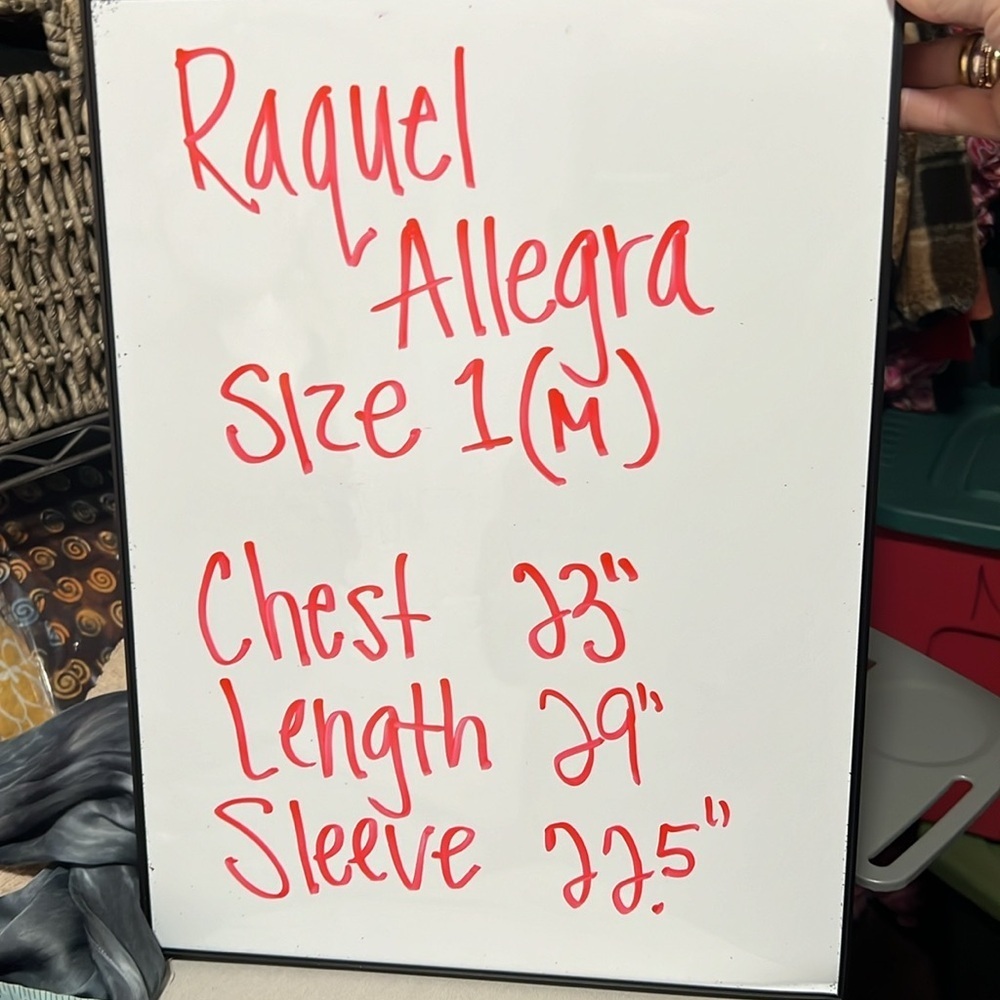 Raquel
Allegra
Size 1 (M)
Chest 23"
Length 29"
Sleeve 22.5"